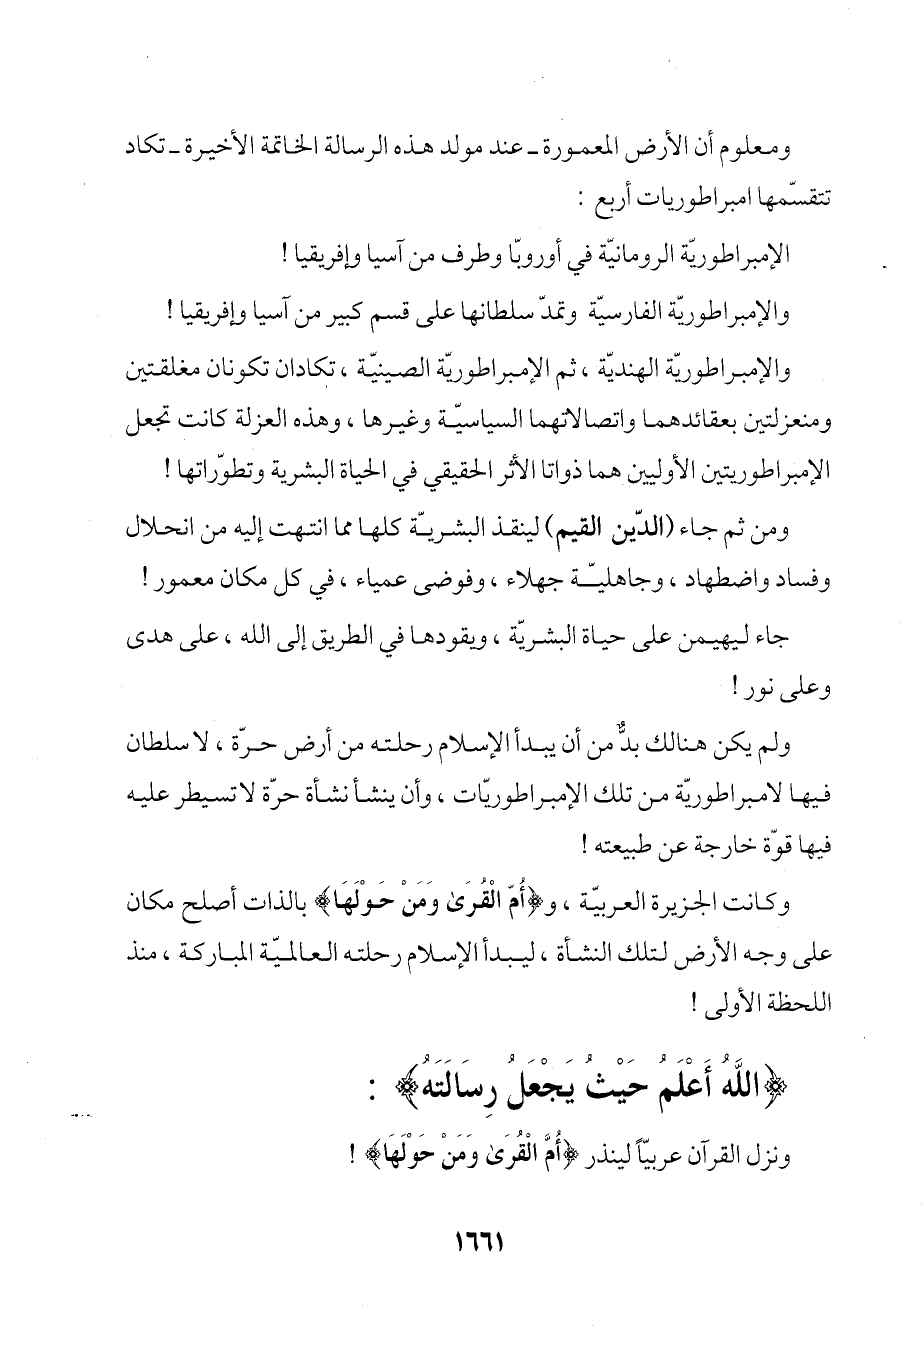 ومعلوم أن الأرض المعمورة ـ عند مولد هذه الرسالة الخاتمة الأخيرة ـ تكاد
تتقسّمها امبراطوريات أربع :
الإمبراطوريّة الرومانيّة في أوروبّا وطرف من آسيا وإفريقيا !
والإمبراطوريّة الفارسيّة وتمدّ سلطانها على قسم كبير من آسيا وإفريقيا !
والإمبراطوريّة الهنديّة ، ثم الإمبراطوريّة الصينيّة ، تكادان تكونان مغلقتين
ومنعزلتين بعقائدهما واتصالاتهما السياسيّة وغيرها ، وهذه العزلة كانت تجعل
الإمبراطوريتين الأوليين هما ذواتا الأثر الحقيقي في الحياة البشرية وتطوّراتها !
ومن ثم جاء (الدّين القيم) لينقذ البشريّة كلها مما انتهت إليه من انحلال
وفساد واضطهاد ، وجاهليّة جهلاء ، وفوضى عمياء ، في كل مكان معمور !
جاء ليهيمن على حياة البشريّة ، ويقودها في الطريق إلى الله ، على هدى
وعلى نور !
ولم يكن هنالك بدٌّ من أن يبدأ الإسلام رحلته من أرض حرّة ، لا سلطان
فيها لامبراطوريّة من تلك الإمبراطوريّات ، وأن ينشأ نشأة حرّة لا تسيطر عليه
فيها قوّة خارجة عن طبيعته !
وكانت الجزيرة العربيّة ، و﴿أُمّ الْقُرَىٰ وَمَنْ حَوْلَهَا﴾ بالذات أصلح مكان
على وجه الأرض لتلك النشأة ، ليبدأ الإسلام رحلته العالميّة المباركة ، منذ
اللحظة الأولى !
﴿اللَّهُ أَعْلَمُ حَيْثُ يَجْعَلُ رِسَالَتَهُ﴾ :
ونزل القرآن عربيّاً لينذر ﴿أُمَّ الْقُرَىٰ وَمَنْ حَوْلَهَا﴾ !
١٦٦١